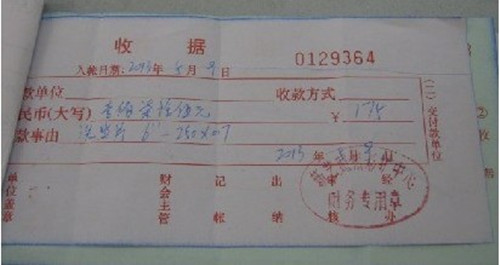 收 据 0129364
入帐日期:2013年5月9日
款单位 收款方式
民币(大写) 壹佰柒拾伍元 ¥ 175
款事由 250×0.7
2013年5月9日
单位盖章 财会主管 记帐 出纳 审核 经办
财务专用章
(二)交付款单位
②